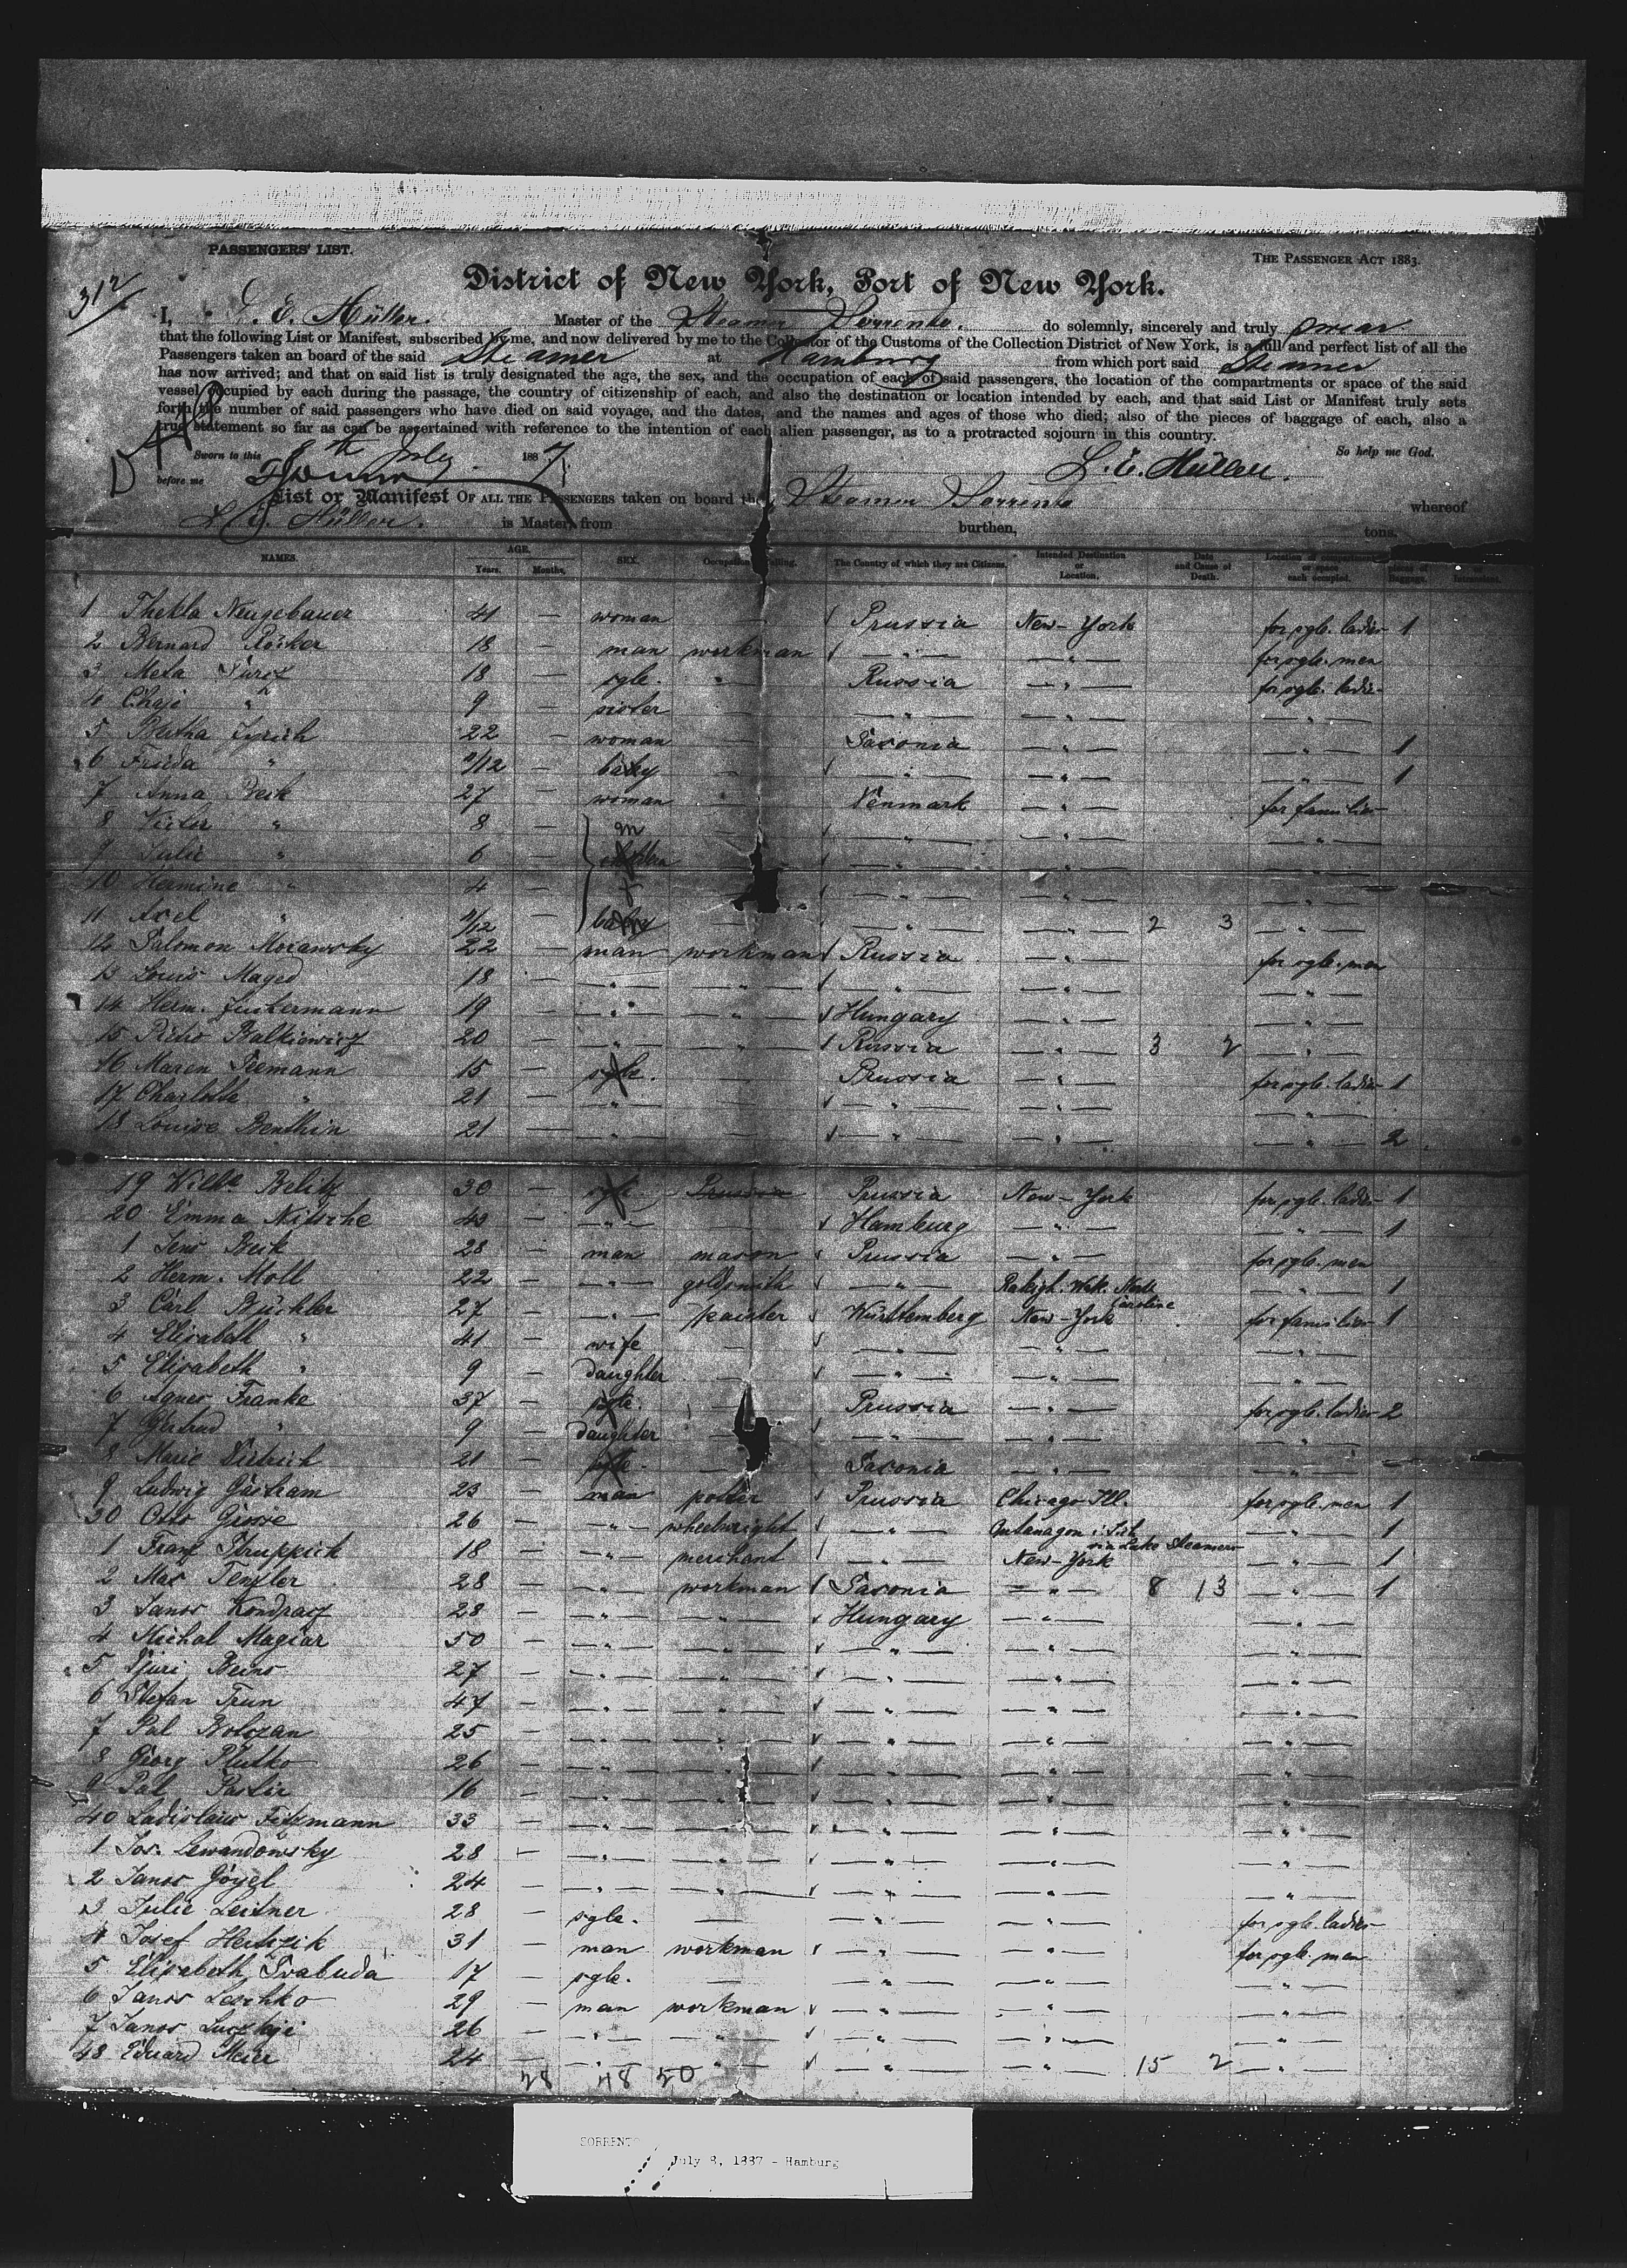 PASSENGERS' LIST.
THE PASSENGER ACT 1883.
312
District of New York, Port of New York.
I, L. E. Müller. Master of the Steamer Sorrento. do solemnly, sincerely and truly swear
that the following List or Manifest, subscribed by me, and now delivered by me to the Collector of the Customs of the Collection District of New York, is a full and perfect list of all the
Passengers taken an board of the said Steamer at Hamburg from which port said Steamer
has now arrived; and that on said list is truly designated the age, the sex, and the occupation of each of said passengers, the location of the compartments or space of the said
vessel occupied by each during the passage, the country of citizenship of each, and also the destination or location intended by each, and that said List or Manifest truly sets
forth the number of said passengers who have died on said voyage, and the dates, and the names and ages of those who died; also of the pieces of baggage of each, also a
true statement so far as can be ascertained with reference to the intention of each alien passenger, as to a protracted sojourn in this country.
Sworn to this 8th July 1887. So help me God.
before me L. E. Müller.
List or Manifest OF ALL THE PASSENGERS taken on board the Steamer Sorrento whereof
L. E. Müller. is Master, from burthen, tons.
NAMES. AGE. Years. Months. SEX. Occupation Calling. The Country of which they are Citizens. Intended Destination or Location. Date and Cause of Death. Location of compartment or space each occupied. Baggage.
1 Thekla Neugebauer 41 — woman — Prussia New-York for sgle. ladies 1
2 Bernard 18 — man workman — " — — " — for sgle. men
3 Meta 18 — sgle. Russia — " — for sgle. ladies
4 Chaje " 9 — sister — " — — " — — " —
5 Bertha Zyrich 22 — woman Saxonia — " — — " — 1
6 Frieda " /12 — baby — " — — " — — " — 1
7 Anna Beck 27 — woman Denmark — " — for families
8 Victor " 8 — m — " — — " — — " —
9 Julie " 6 — children — " — — " —
10 Hermine " 4 — — " — — " — — " —
11 Axel " 11/12 — baby — " — — " — 2 3 — " —
12 Salomon Morawsky 22 — man workman Russia — " — for sgle. men
13 Louis Maged 18 — — " — — " — — " — — " — — " —
14 Herm. Zuckermann 19 — — " — — " — Hungary — " — — " —
15 Pietro Balkiewicz 20 — — " — — " — Russia — " — 3 2 — " —
16 Maren Teemann 15 — sgle. Prussia — " — for sgle. ladies 1
17 Charlotte " 21 — — " — — " — — " — — " —
18 Louise Benthin 21 — — " — — " — — " — — " — 2
19 Wilh. Belitz 30 — sgle. Prussia Prussia New-York for sgle. ladies 1
20 Emma Nitsche 43 — — " — Hamburg — " — — " — 1
1 Jens Beck 28 — man mason Prussia — " — for sgle. men
2 Herm. Moll 22 — — " — goldsmith — " — Raleigh. Wak. North Caroline — " — 1
3 Carl Büchler 27 — — " — painter Württemberg New-York for families 1
4 Elisabeth " 41 — wife — " — — " — — " —
5 Elisabeth " 9 — daughter — " — — " — — " —
6 Agnes Franke 37 — sgle. Prussia — " — for sgle. ladies 2
7 Gertrud " 9 — daughter — " — — " — — " —
8 Marie Dietrich 21 — sgle. Saxonia — " — — " —
9 Ludwig Gastram 23 — man potter Prussia Chicago Ill. for sgle. men 1
30 Otto Giese 26 — — " — wheelwright — " — via Lake Steamers — " — 1
1 Franz Struppeck 18 — — " — merchant — " — New-York — " — 1
2 Max Tenzler 28 — — " — workman Saxonia — " — 8 13 — " — 1
3 Janos Kondracz 28 — — " — — " — Hungary — " — — " —
4 Michal Magiar 50 — — " — — " — — " — — " — — " —
5 Djuri Beins 27 — — " — — " — — " — — " — — " —
6 Stefan Trun 47 — — " — — " — — " — — " — — " —
7 Pal Bolozan 25 — — " — — " — — " — — " — — " —
8 Georg Plutko 26 — — " — — " — — " — — " — — " —
9 Pal Paslir 16 — — " — — " — — " — — " — — " —
40 Ladislaus Fitzmann 33 — — " — — " — — " — — " — — " —
1 Jos. Lewandowsky 28 — — " — — " — — " — — " — — " —
2 Janos Göygl 24 — — " — — " — — " — — " — — " —
3 Julie Leitner 28 — sgle. — — " — — " — for sgle. ladies
4 Josef 31 — man workman — " — — " — for sgle. men
5 Elisabeth Svabuda 17 — sgle. — — " — — " — — " —
6 Janos Leschko 29 — man workman — " — — " — — " —
7 Janos 26 — — " — — " — — " — — " — — " —
48 Eduard Meier 24 — — " — — " — — " — — " — 15 2 — " —
28 48 20
SORRENTO
July 8, 1887 - Hamburg